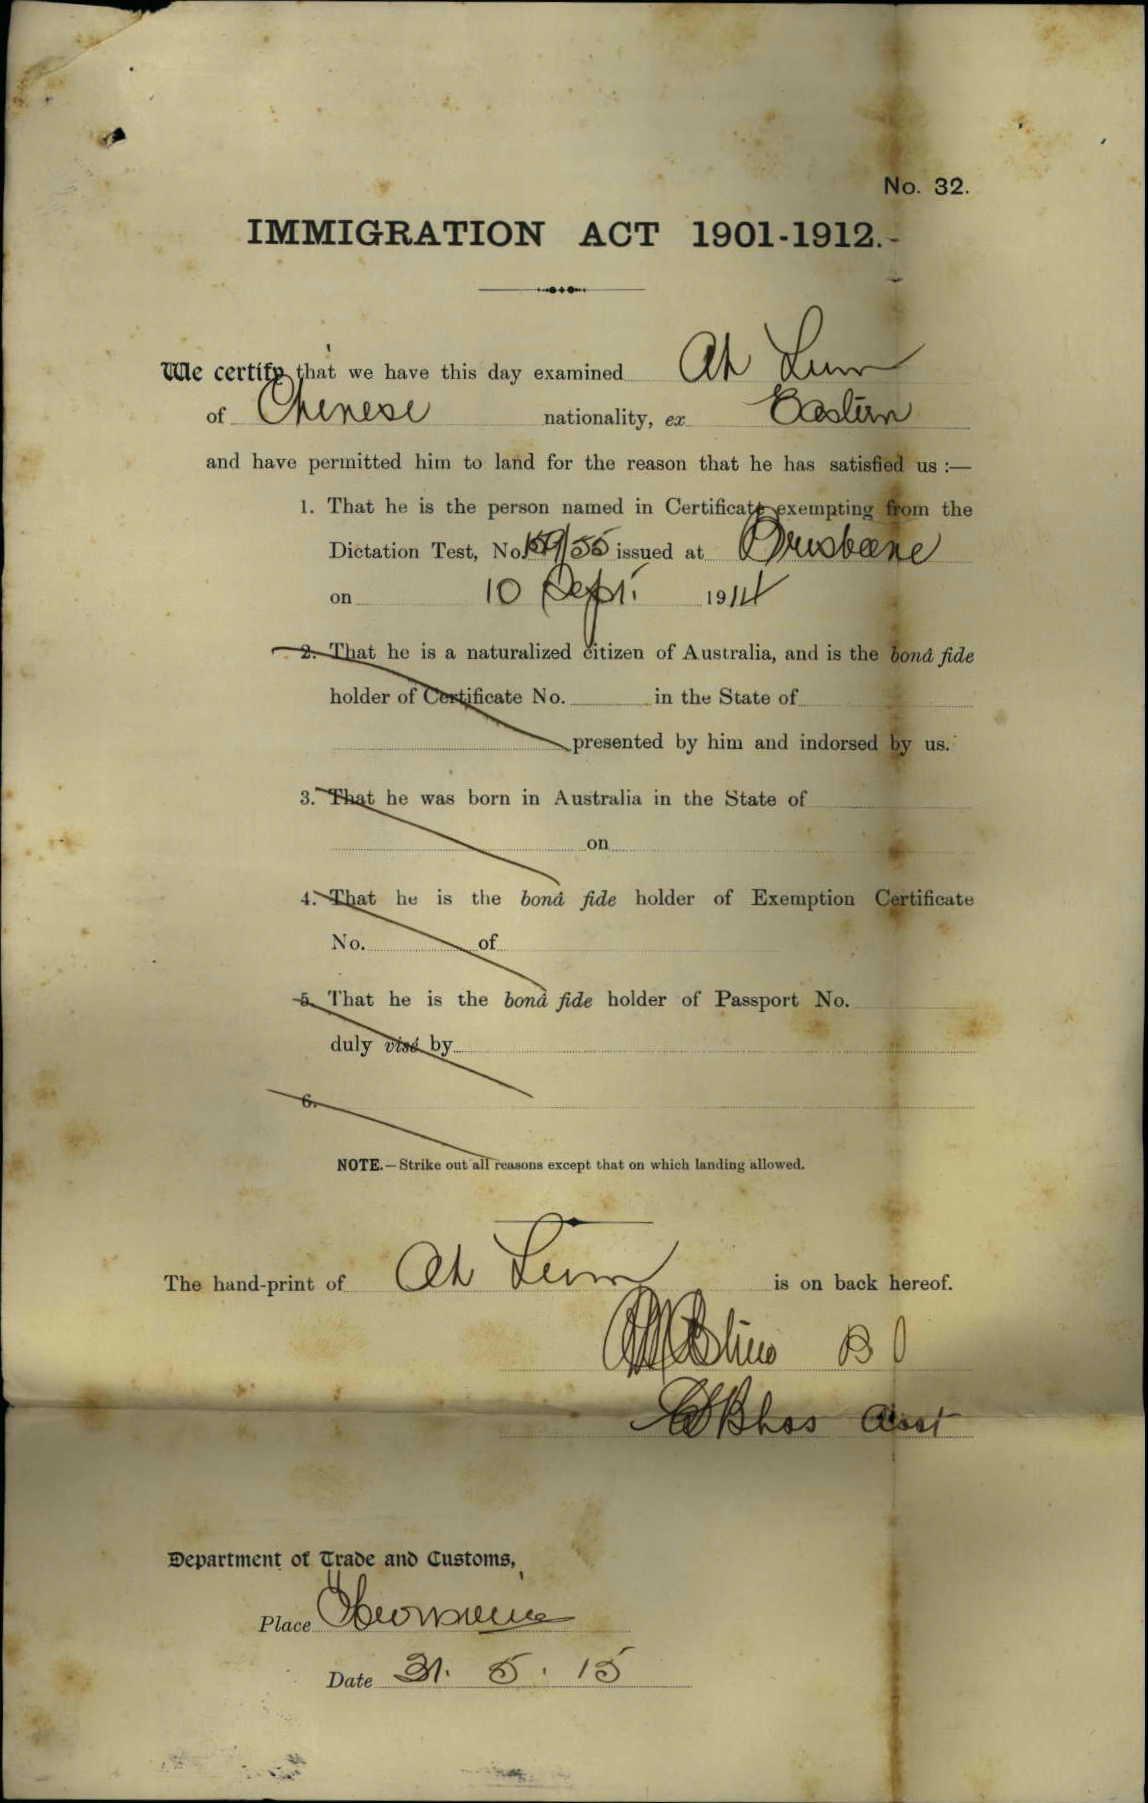 No. 32.
IMMIGRATION ACT 1901-1912.
We certify that we have this day examined Ah Lum
of Chinese nationality, ex Eastern
and have permitted him to land for the reason that he has satisfied us :—
1. That he is the person named in Certificate exempting from the
Dictation Test, No. 159/55 issued at Brisbane
on 10 Sept. 1914
2. That he is a naturalized citizen of Australia, and is the bonâ fide
holder of Certificate No. in the State of
presented by him and indorsed by us.
3. That he was born in Australia in the State of
on
4. That he is the bonâ fide holder of Exemption Certificate
No. of
5. That he is the bonâ fide holder of Passport No.
duly visé by
6.
NOTE.—Strike out all reasons except that on which landing allowed.
The hand-print of Ah Lum is on back hereof.
Asst
Department of Trade and Customs,
Place
Date 31. 5. 15